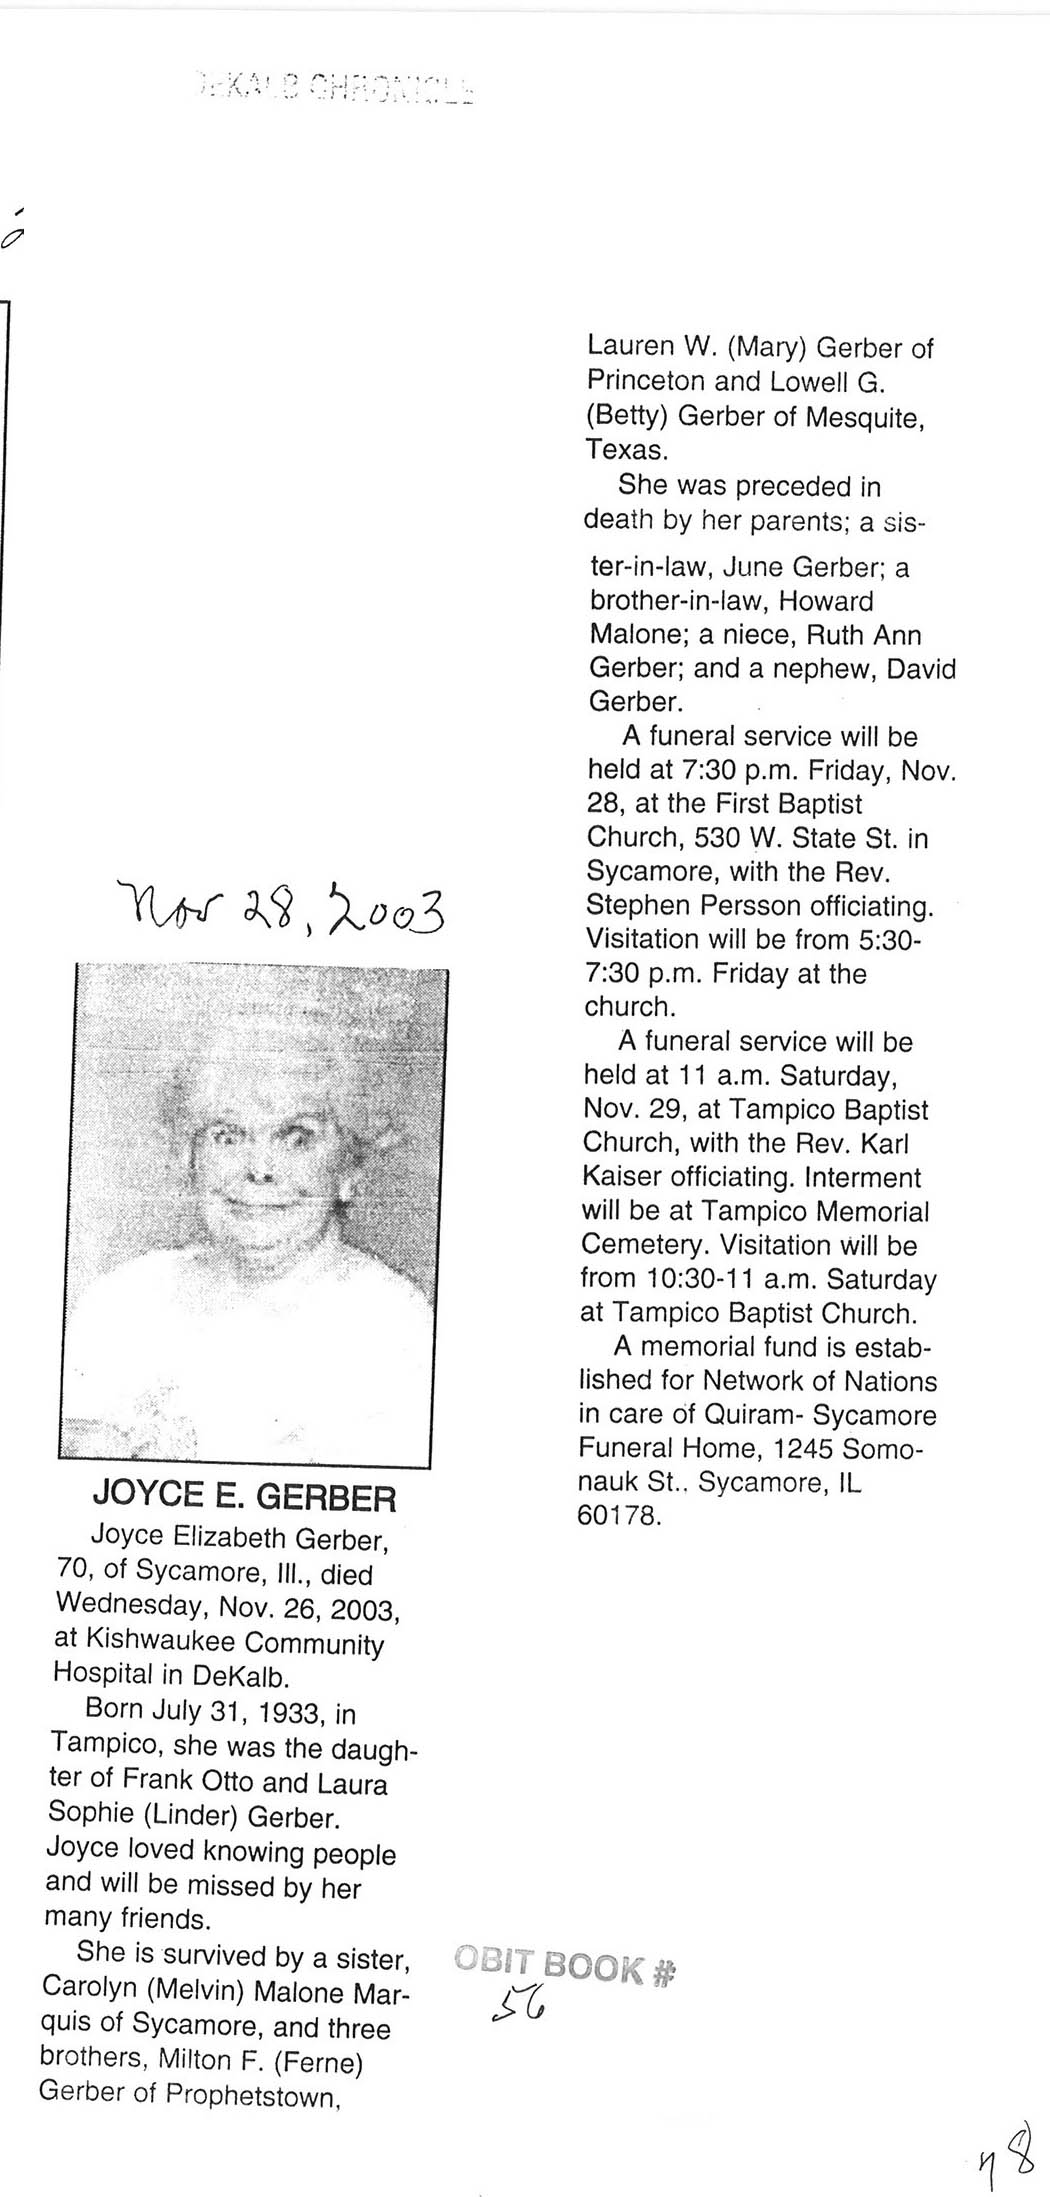 DEKALB CHRONICLE
Nov 28, 2003
JOYCE E. GERBER
Joyce Elizabeth Gerber,
70, of Sycamore, Ill., died
Wednesday, Nov. 26, 2003,
at Kishwaukee Community
Hospital in DeKalb.
Born July 31, 1933, in
Tampico, she was the daugh-
ter of Frank Otto and Laura
Sophie (Linder) Gerber.
Joyce loved knowing people
and will be missed by her
many friends.
She is survived by a sister,
Carolyn (Melvin) Malone Mar-
quis of Sycamore, and three
brothers, Milton F. (Ferne)
Gerber of Prophetstown,
Lauren W. (Mary) Gerber of
Princeton and Lowell G.
(Betty) Gerber of Mesquite,
Texas.
She was preceded in
death by her parents; a sis-
ter-in-law, June Gerber; a
brother-in-law, Howard
Malone; a niece, Ruth Ann
Gerber; and a nephew, David
Gerber.
A funeral service will be
held at 7:30 p.m. Friday, Nov.
28, at the First Baptist
Church, 530 W. State St. in
Sycamore, with the Rev.
Stephen Persson officiating.
Visitation will be from 5:30-
7:30 p.m. Friday at the
church.
A funeral service will be
held at 11 a.m. Saturday,
Nov. 29, at Tampico Baptist
Church, with the Rev. Karl
Kaiser officiating. Interment
will be at Tampico Memorial
Cemetery. Visitation will be
from 10:30-11 a.m. Saturday
at Tampico Baptist Church.
A memorial fund is estab-
lished for Network of Nations
in care of Quiram- Sycamore
Funeral Home, 1245 Somo-
nauk St., Sycamore, IL
60178.
OBIT BOOK #
56